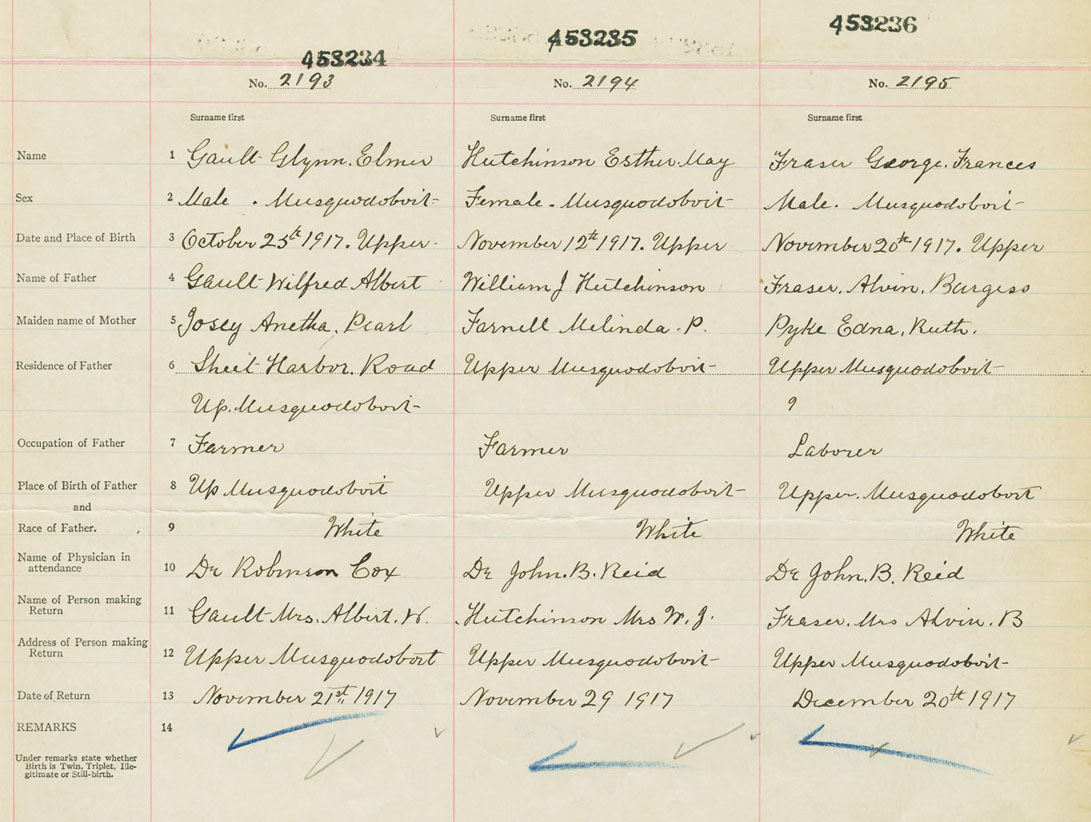 453234 453235 453236
No. 2193 No. 2194 No. 2195
Surname first Surname first Surname first
Name 1 Gault Glynn. Elmer Hutchinson Esther May Fraser George. Frances
Sex 2 Male . Musquodoboit Female. Musquodoboit Male. Musquodoboit
Date and Place of Birth 3 October 25th 1917. Upper. November 12th 1917. Upper November 20th 1917. Upper
Name of Father 4 Gault Wilfred Albert William J Hutchinson Fraser. Alvin. Burgess
Maiden name of Mother 5 Josey Anetha. Pearl Farnell Melinda. P. Pyke Edna. Ruth.
Residence of Father 6 Sheit Harbor. Road Upper Musquodoboit Upper Musquodoboit
Up. Musquodoboit 9
Occupation of Father 7 Farmer Farmer Laborer
Place of Birth of Father 8 Up Musquodoboit Upper Musquodoboit Upper. Musquodoboit
and
Race of Father. 9 White White White
Name of Physician in
attendance 10 Dr Robinson Cox Dr John. B. Reid Dr John. B. Reid
Name of Person making
Return 11 Gault Mrs. Albert. W. Hutchinson Mrs W. J. Fraser. Mrs Alvin. B
Address of Person making
Return 12 Upper Musquodoboit Upper Musquodoboit Upper Musquodoboit
Date of Return 13 November 21st 1917 November 29 1917 December 20th 1917
REMARKS 14
Under remarks state whether
Birth is Twin, Triplet, Ille-
gitimate or Still-birth.